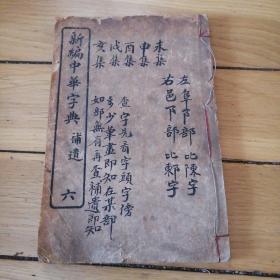 左阜阝部 比陳字
右邑阝部 比鄭字
未集
申集
酉集
戌集
亥集
查字先看字頭字傍
多少筆畫即知在某部
如部無有再查補遺即知
新編中華字典 補遺 六